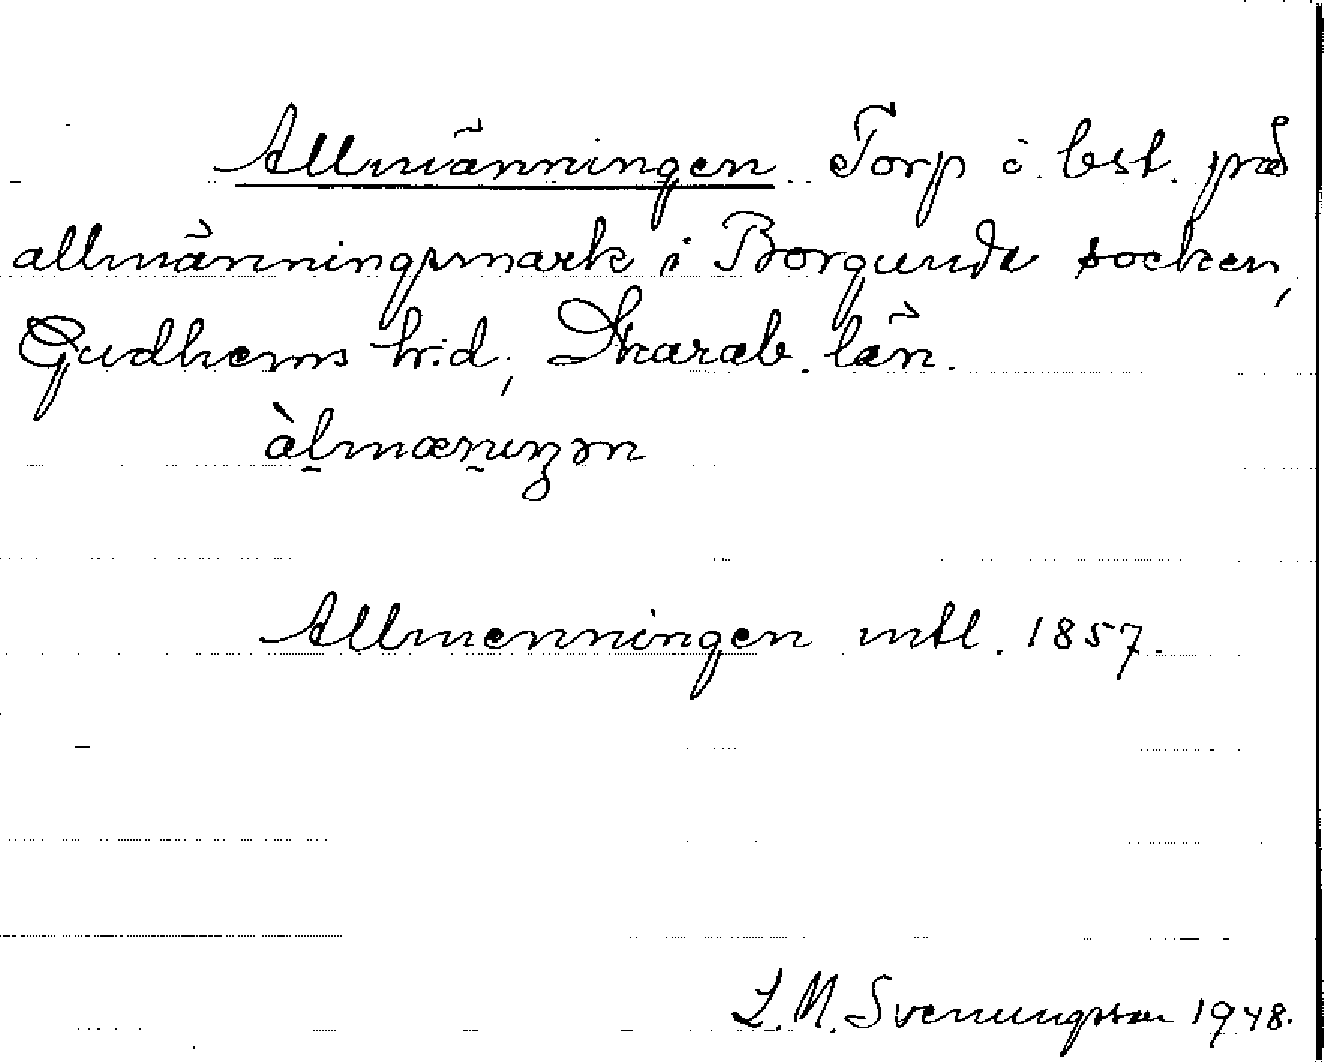 Allmänningen Torp ö. best. på
allmänningsmark i Borgunda socken,
Gudhems h:d, Skarab. län.
àl̠mæn̠ıŋən
Allmenningen mtl. 1857.
L. M. Svenungsson 1948.